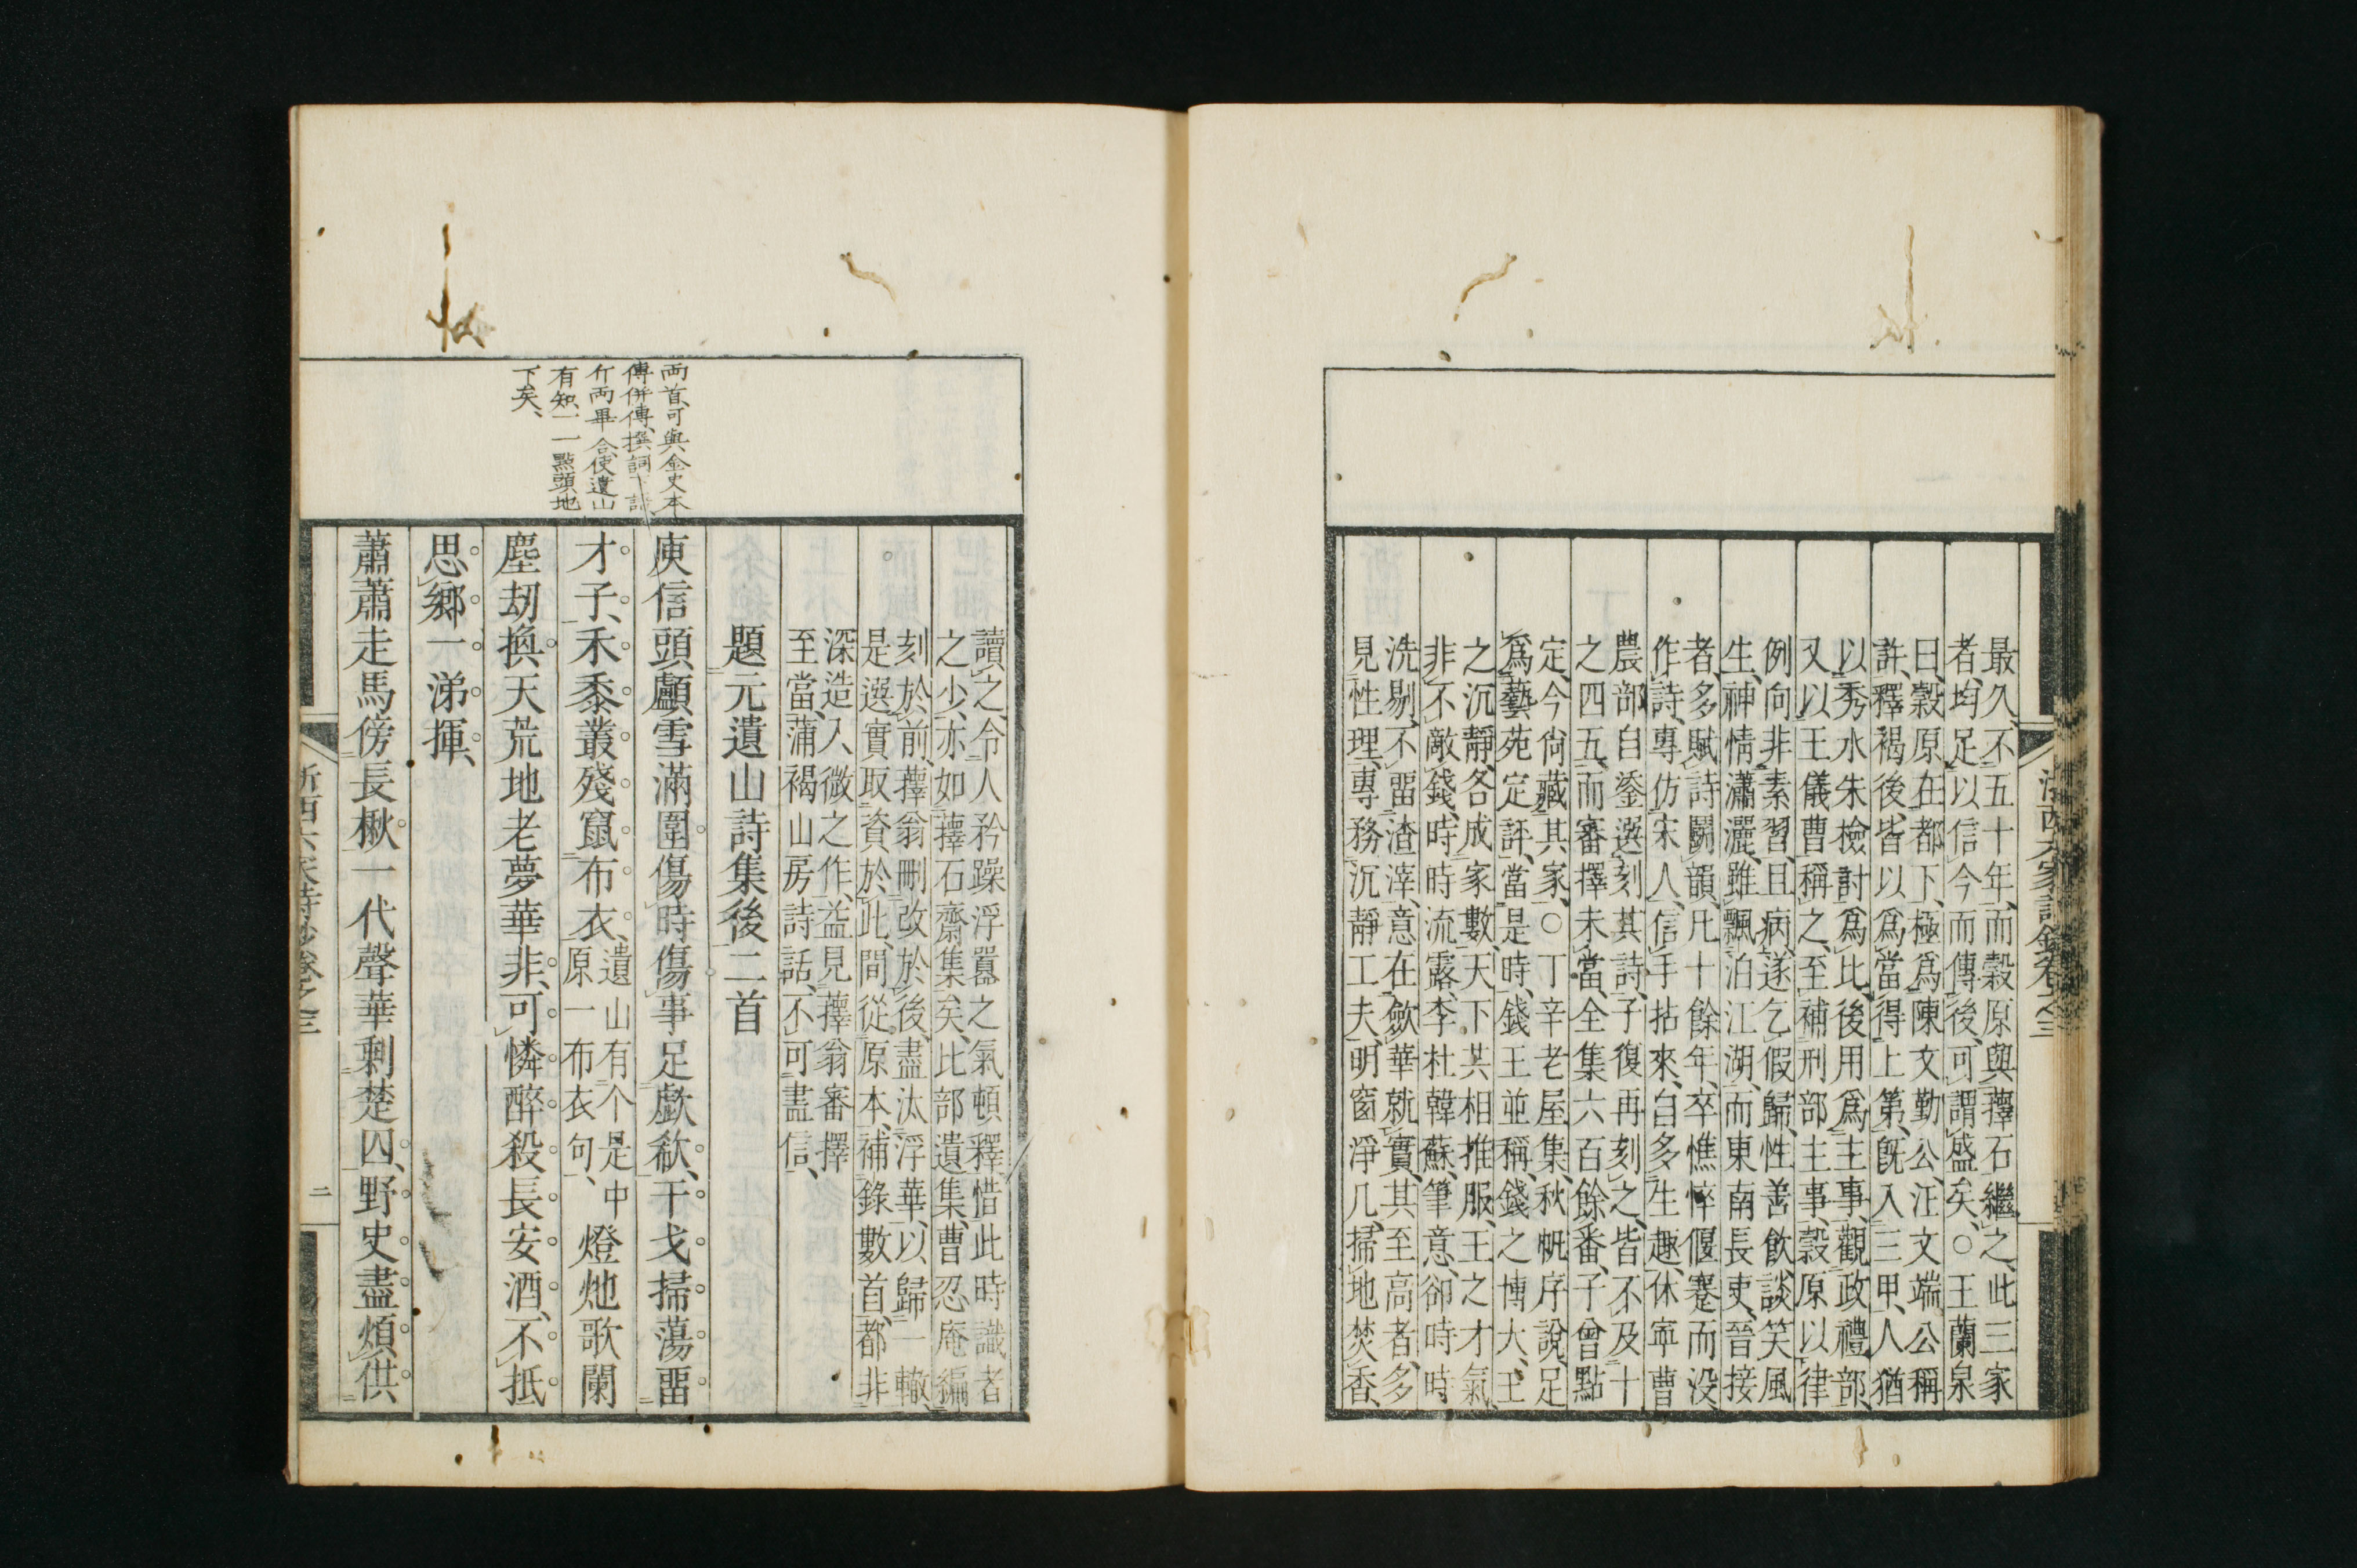 最久、不五十年、而穀原與蘀石繼之、此三家
者、均足以信今而傳後、可謂盛矣、○王蘭泉
曰、穀原在都下、極爲陳文勤公、汪文端公稱
許、釋褐後、皆以爲當得上第、既入三甲、人猶
以秀水朱檢討爲比、後用爲主事、觀政禮部、
又以王儀曹稱之、至補刑部主事、穀原以律
例向非素習、且病、遂乞假歸、性善飲、談笑風
生、神情瀟灑、雖飄泊江湖、而東南長吏、晉接
者、多賦詩鬭韻、凡十餘年、卒憔悴偃蹇而没、
作詩、專仿宋人、信手拈來、自多生趣、休寧曹
農部自鋈選刻其詩、子復再刻之、皆不及十
之四五、而審擇未當、全集六百餘番、子曾點
定、今尙藏其家、○丁辛老屋集、秋帆序說、足
爲藝苑定評、當是時、錢王並稱、錢之博大、王
之沉靜、各成家數、天下共相推服、王之才氣、
非不敵錢、時時流露、李杜韓蘇、筆意、卻時時
洗剔、不畱渣滓、意在斂華就實、其至高者、多
見性理、專務沉靜工夫、明窗淨几、掃地焚香、
浙西六家詩鈔卷之三
讀之、令人矜躁浮囂之氣頓釋、惜此時識者
之少、亦如蘀石齋集矣、比部遺集、曹忍庵編
刻於前、蘀翁刪改於後、盡汰浮華、以歸一轍、
是選實取資於此、間從原本、補錄數首、都非
深造入微之作、益見蘀翁審擇
至當、蒲褐山房詩話、不可盡信、
題元遺山詩集後二首
庾信頭顱雪滿圍傷時傷事足歔欷、干戈掃蕩畱
才子、禾黍叢殘竄布衣、遺山有个是中
原一布衣句、燈灺歌闌
塵劫換天荒地老夢華非、可憐醉殺長安酒、不抵
思鄉一涕揮、
蕭蕭走馬傍長楸一代聲華剩楚囚、野史盡煩供
兩首、可與金史本
傳併傳、撰詞一語、
斤兩畢合、使遺山
有知、一一點頭地
下矣、
浙西六家詩鈔卷之三
二